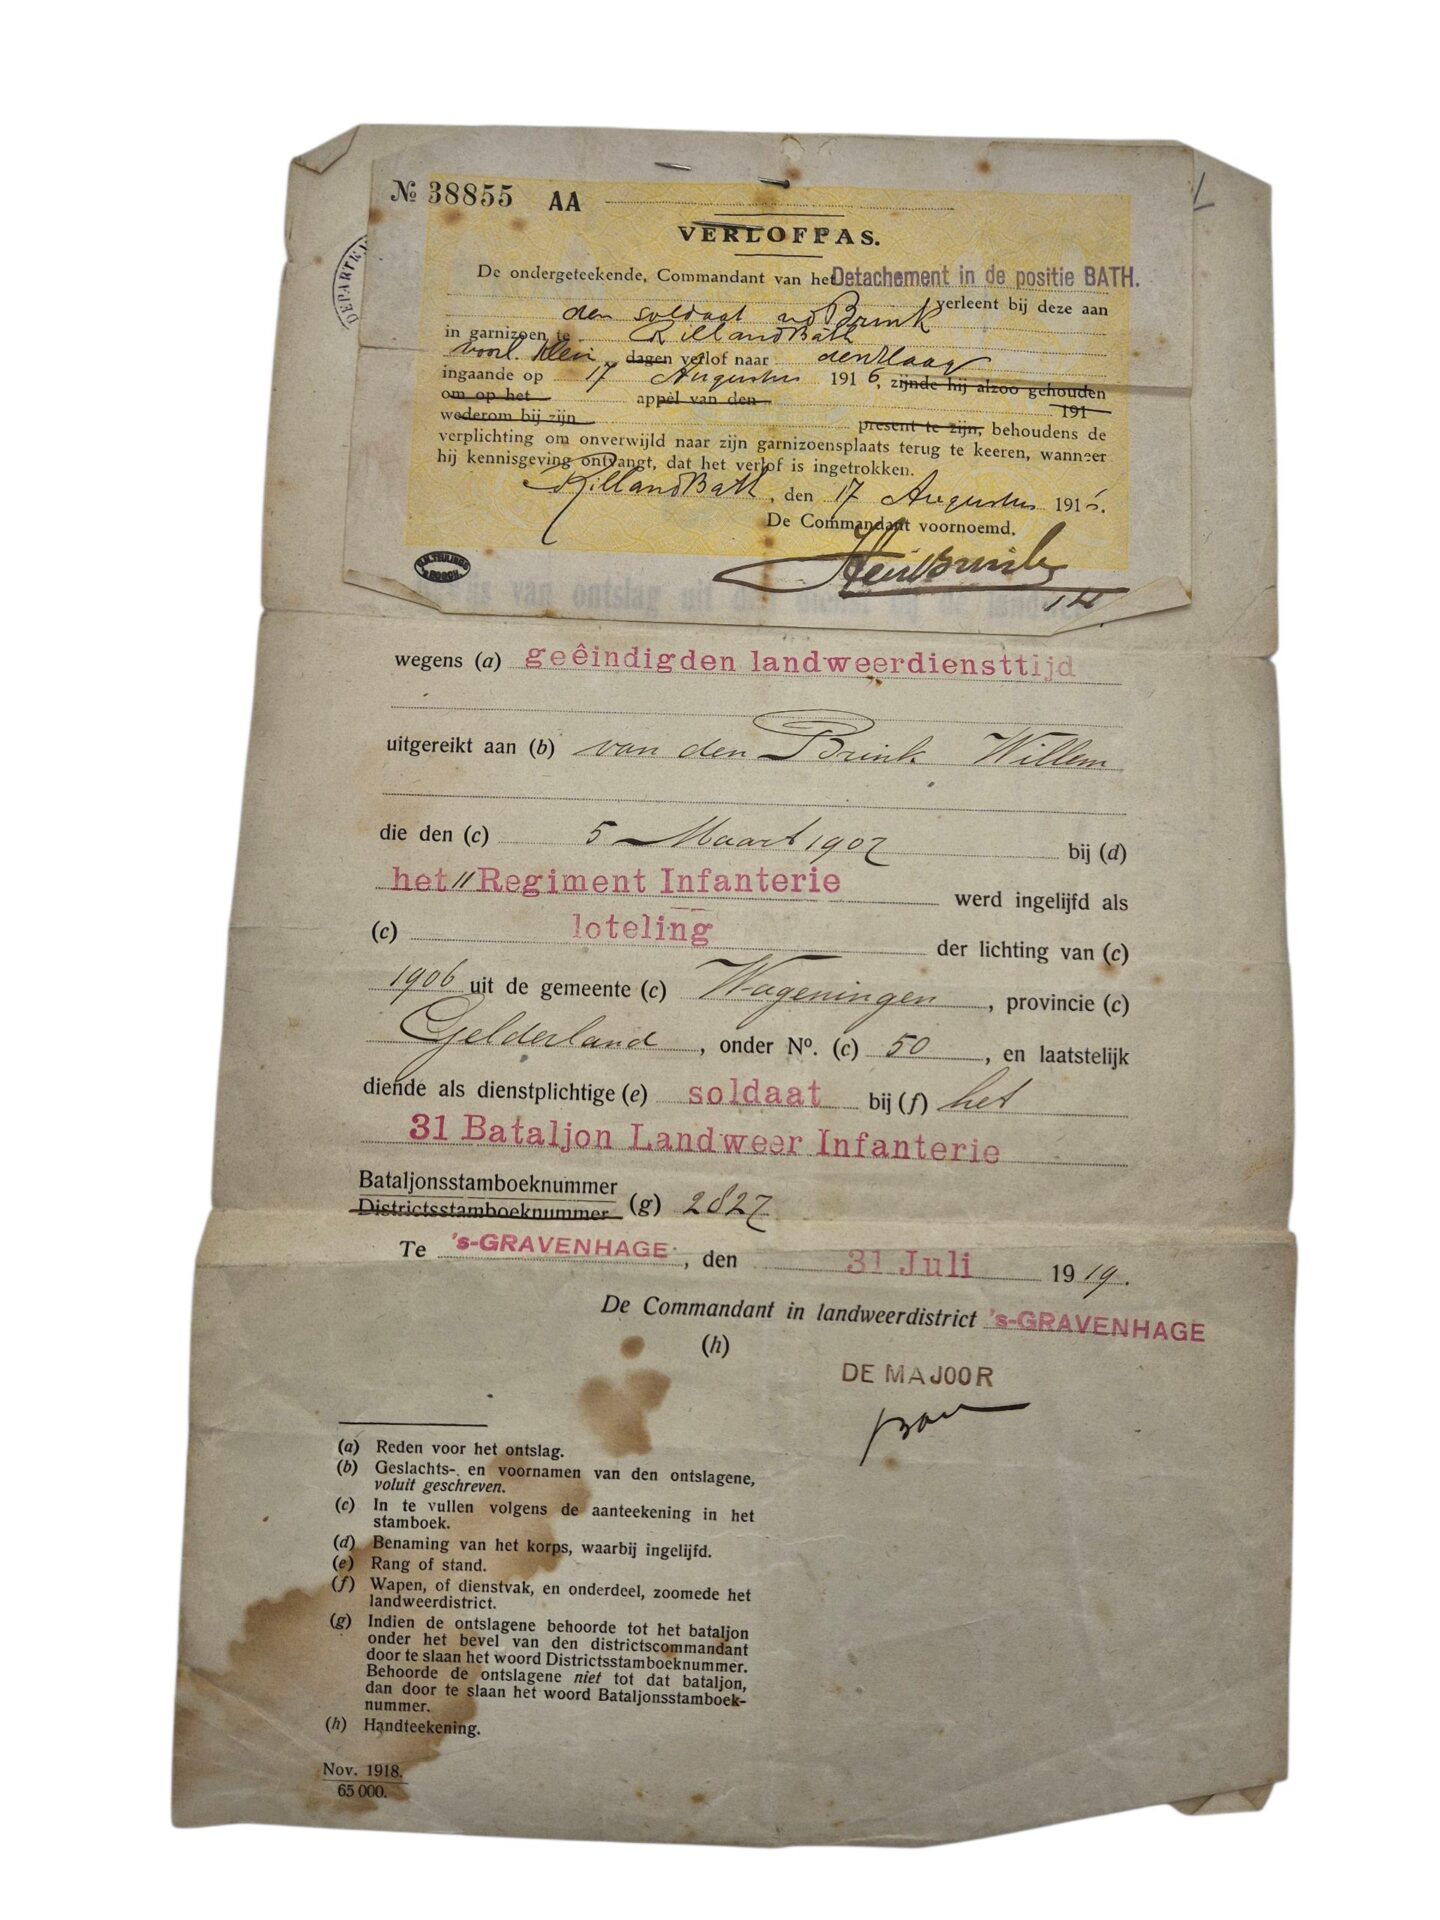 № 38855 AA
VERLOFPAS.
De ondergeteekende, Commandant van het Detachement in de positie BATH.
verleent bij deze aan
den soldaat vd Brink
in garnizoen te Rilland Bath
voorl. klein dagen verlof naar den Haag
ingaande op 17 Augustus 1916, zijnde hij alzoo gehouden
om op het appèl van den 191
wederom bij zijn present te zijn, behoudens de
verplichting om onverwijld naar zijn garnizoensplaats terug te keeren, wanneer
hij kennisgeving ontvangt, dat het verlof is ingetrokken.
Rilland Bath, den 17 Augustus 191
De Commandant voornoemd.
DEPARTE
van ontslag uit den dienst bij de landweer
wegens (a) geêindigden landweerdiensttijd
uitgereikt aan (b) van den Brink Willem
die den (c) 5 Maart 1907 bij (d)
het 11 Regiment Infanterie werd ingelijfd als
(c) loteling der lichting van (c)
1906 uit de gemeente (c) Wageningen, provincie (c)
Gelderland, onder No. (c) 50, en laatstelijk
diende als dienstplichtige (e) soldaat bij (f) het
31 Bataljon Landweer Infanterie
Bataljonsstamboeknummer
Districtsstamboeknummer (g) 2827
Te 's-GRAVENHAGE, den 31 Juli 1919.
De Commandant in landweerdistrict 's-GRAVENHAGE
(h)
DE MAJOOR
(a) Reden voor het ontslag.
(b) Geslachts- en voornamen van den ontslagene,
voluit geschreven.
(c) In te vullen volgens de aanteekening in het
stamboek.
(d) Benaming van het korps, waarbij ingelijfd.
(e) Rang of stand.
(f) Wapen, of dienstvak, en onderdeel, zoomede het
landweerdistrict.
(g) Indien de ontslagene behoorde tot het bataljon
onder het bevel van den districtscommandant
door te slaan het woord Districtsstamboeknummer.
Behoorde de ontslagene niet tot dat bataljon,
dan door te slaan het woord Bataljonsstamboek-
nummer.
(h) Handteekening.
Nov. 1918.
65 000.